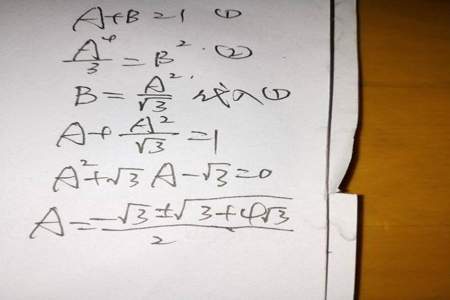 A+B=1 ①
A⁴/3 = B² ②
B = A²/√3 代入①
A + A²/√3 = 1
A²+√3 A-√3=0
A = (-√3 ± √(3+4√3))/2